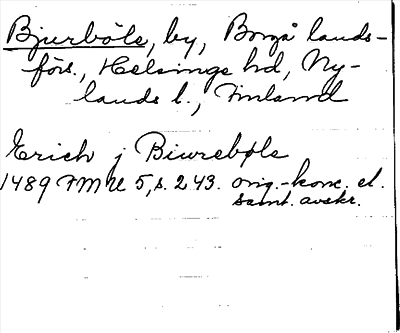 Bjurböle, by, Borgå lands-
förs., Helsinge hd, Ny-
lands l., Finland
Erich j Biwrebøle
1489 FMU 5, s. 243. orig.-konc. el.
samt. avskr.